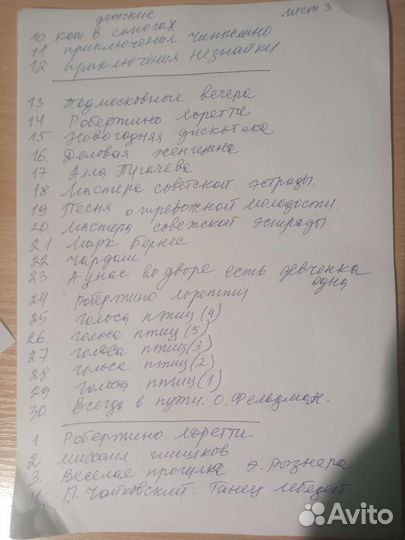 детские лист 3
10 кот в сапогах
11 приключения Чиполино
12 приключения Незнайки.
13 Подмосковные вечера
14 Робертино Лоретти
15. Новогодняя дискотека
16. Деловая женщина
17. Алла Пугачева
18. Мастира советской эстрады.
19 Песня о тревожной молодости.
20. Мастира советской эстрады
21 Марк Бернес
22 Чардаш
23 А у нас во дворе есть девченка одна
24 Робертино Лоретти
25. голоса птиц (4)
26. голоса птиц (5)
27 голоса птиц (3)
28 голоса птиц (2)
29 голоса птиц (1)
30. Всегда в пути. О. Фельцман.
1. Робертино Лоретти
2 михаил
3. Веселая прогулка Э. Рознера
4. П. Чайковский. Танец лебедей
Avito